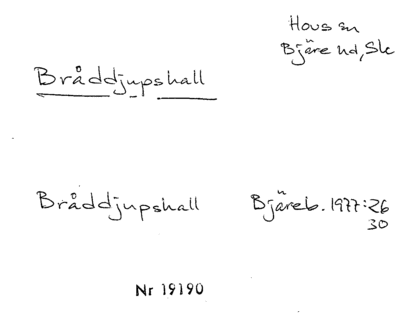 Hovs sn
Bjäre hd, Sk
Bråddjupshall
Bråddjupshall Bjäreb. 1977:26
30
Nr 19190